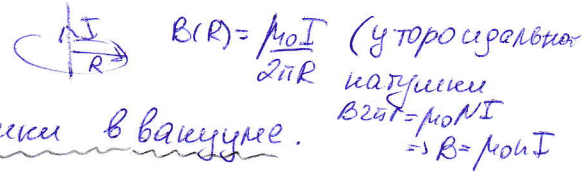 I
R
B(R) = μ₀I / 2πR (у тороидальной
катушки
B2πr = μ₀NI
⇒ B = μ₀nI
в вакууме.